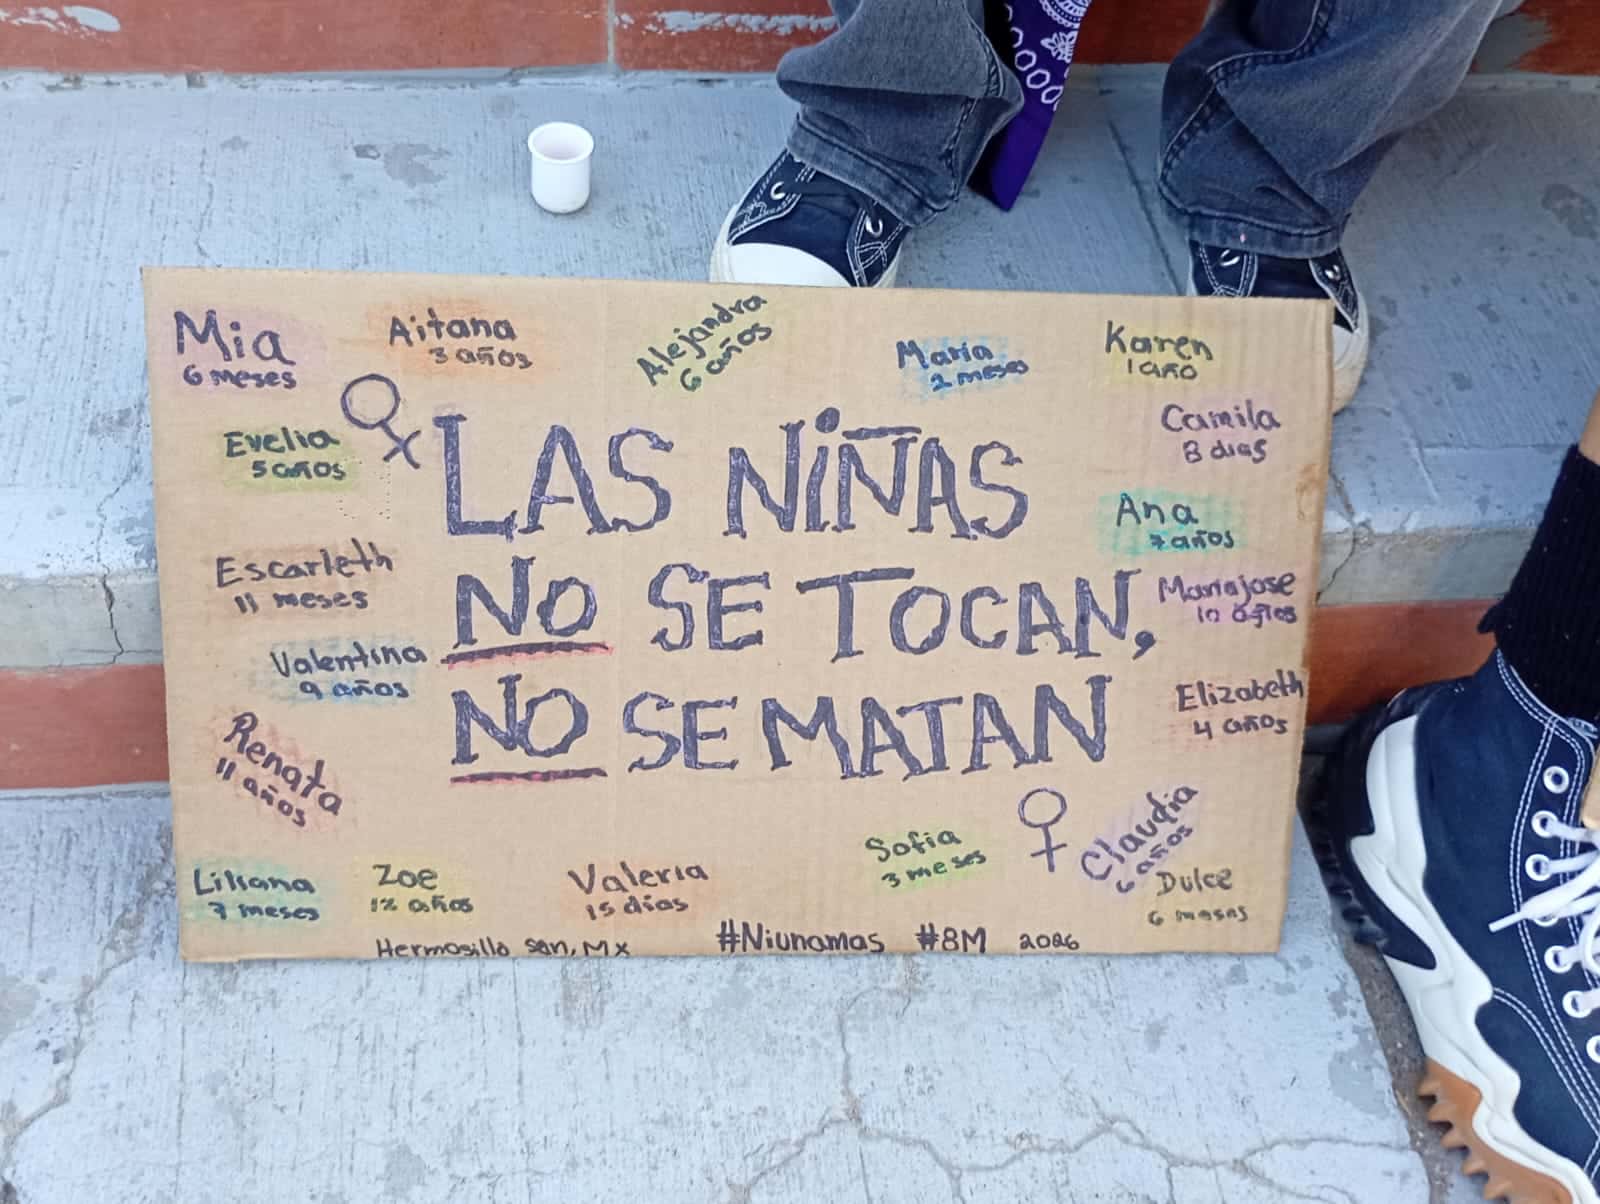 Mia
6 meses
Aitana
3 años
Alejandra
6 años
María
2 meses
Karen
1 año
Evelia
5 años
Camila
8 dias
LAS NIÑAS
NO SE TOCAN,
NO SE MATAN
Ana
7 años
Escarleth
11 meses
Mariajose
10 años
Valentina
9 años
Elizabeth
4 años
Renata
11 años
Claudia
6 años
Sofia
3 meses
Liliana
7 meses
Zoe
12 años
Valeria
15 días
Dulce
6 meses
Hermosillo Son, MX
#Niunamas #8M 2026